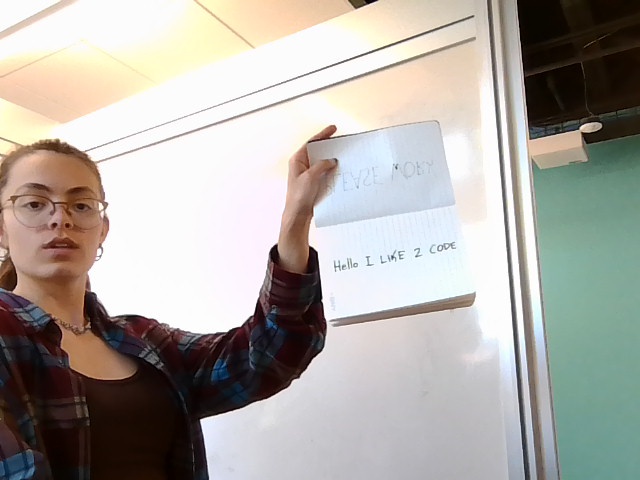 PLEASE WORK
Hello I LIKE 2 CODE